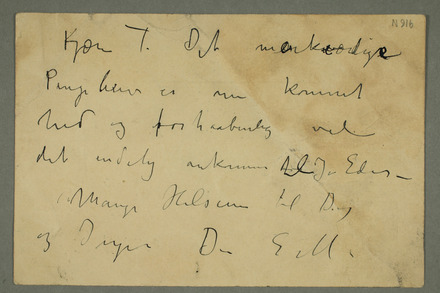 N 916
Kjære T. Det mærkværdige
Pengebrev er nu kommet
hid og forhaabentlig vil
det endelig ankomme til Jer Eders –
Mange Hilsener til Dig
og Inger Din E. M.